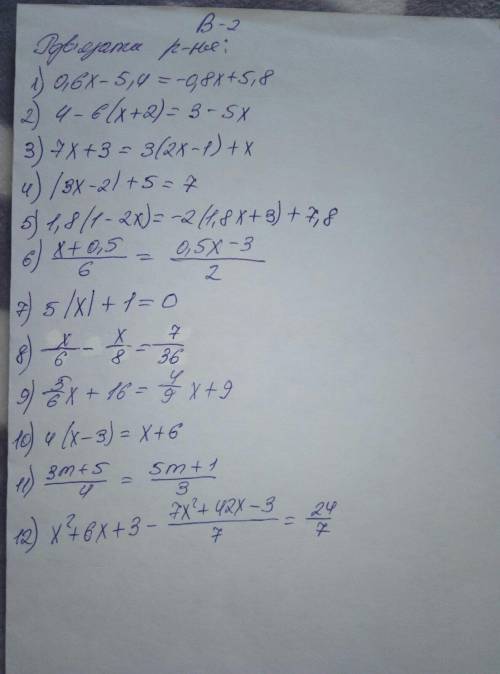 В-2
Розв'язати р-ня:
1) 0,6x - 5,4 = -0,8x + 5,8
2) 4 - 6(x+2) = 3 - 5x
3) 7x + 3 = 3(2x-1) + x
4) |3x-2| + 5 = 7
5) 1,8(1-2x) = -2(1,8x+3) + 7,8
6) \frac{x+0,5}{6} = \frac{0,5x-3}{2}
7) 5|x| + 1 = 0
8) \frac{x}{6} - \frac{x}{8} = \frac{7}{36}
9) \frac{5}{6}x + 16 = \frac{4}{9}x + 9
10) 4(x-3) = x+6
11) \frac{3m+5}{4} = \frac{5m+1}{3}
12) x²+6x+3 - \frac{7x²+42x-3}{7} = \frac{24}{7}